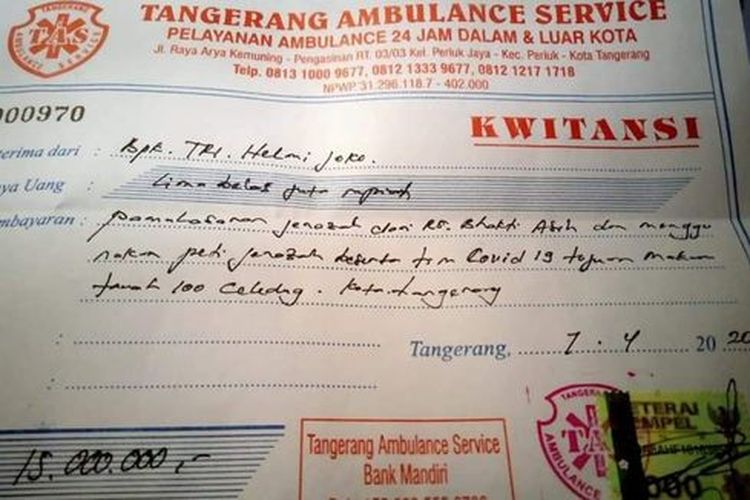 TANGERANG AMBULANCE SERVICE
PELAYANAN AMBULANCE 24 JAM DALAM & LUAR KOTA
Jl. Raya Arya Kemuning - Pengasinan RT. 03/03 Kel. Periuk Jaya - Kec. Periuk - Kota Tangerang
Telp. 0813 1000 9677, 0812 1333 9677, 0812 1217 1718
NPWP 31.296.118.7 - 402.000
TANGERANG
TAS
AMBULANCE SERVICE
000970
KWITANSI
erima dari : Bpk. TRI. Helmi Joko.
ya Uang : Lima belas juta rupiah
mbayaran : Pemakasaran jenazah dari RS. Bhakti Asih dan menggu
nakan peti jenazah beserta tim Covid 19 tujuan makam
tanah 100 Celedug. Kota tangerang
Tangerang, 7 . 4 2020
15.000.000,-
Tangerang Ambulance Service
Bank Mandiri
TANGERA
TA
AMBULANC
ETERAI
EMPEL
000